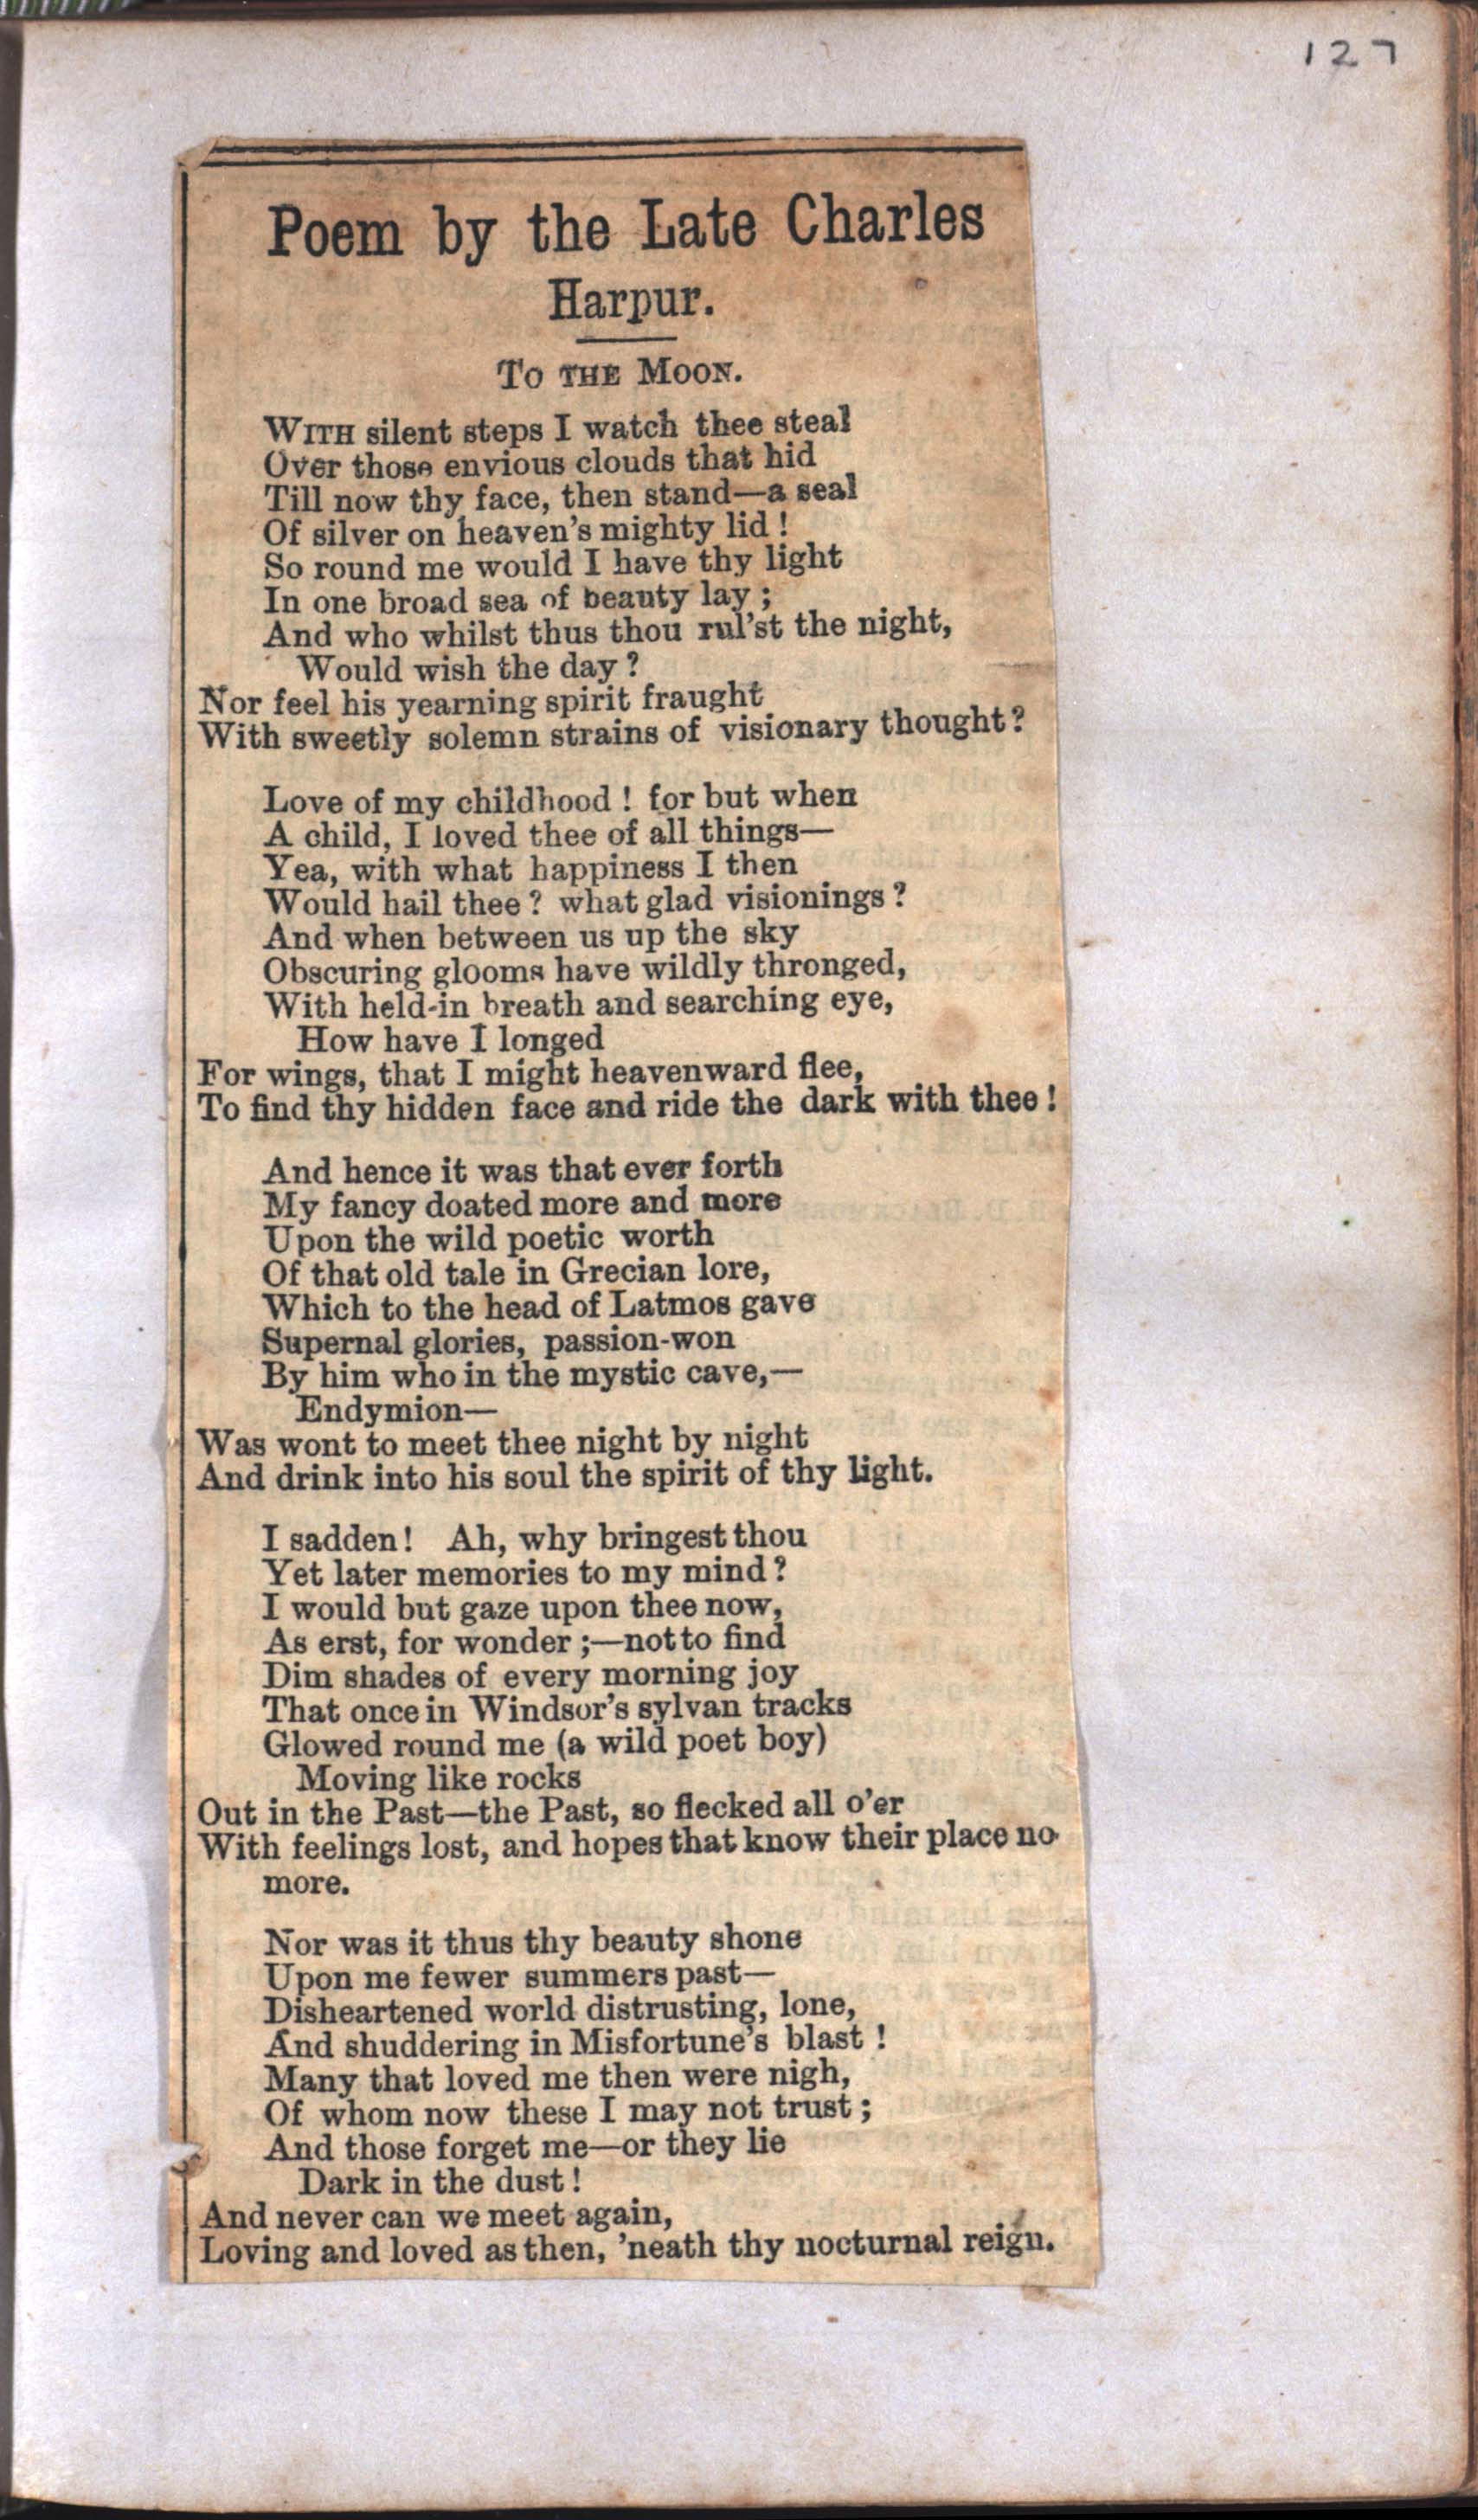 127
Poem by the Late Charles
Harpur.
TO THE MOON.
WITH silent steps I watch thee steal
Over those envious clouds that hid
Till now thy face, then stand—a seal
Of silver on heaven's mighty lid !
So round me would I have thy light
In one broad sea of beauty lay ;
And who whilst thus thou rul'st the night,
Would wish the day ?
Nor feel his yearning spirit fraught
With sweetly solemn strains of visionary thought ?
Love of my childhood ! for but when
A child, I loved thee of all things—
Yea, with what happiness I then
Would hail thee ? what glad visionings ?
And when between us up the sky
Obscuring glooms have wildly thronged,
With held-in breath and searching eye,
How have I longed
For wings, that I might heavenward flee,
To find thy hidden face and ride the dark with thee !
And hence it was that ever forth
My fancy doated more and more
Upon the wild poetic worth
Of that old tale in Grecian lore,
Which to the head of Latmos gave
Supernal glories, passion-won
By him who in the mystic cave,—
Endymion—
Was wont to meet thee night by night
And drink into his soul the spirit of thy light.
I sadden ! Ah, why bringest thou
Yet later memories to my mind ?
I would but gaze upon thee now,
As erst, for wonder ;—not to find
Dim shades of every morning joy
That once in Windsor's sylvan tracks
Glowed round me (a wild poet boy)
Moving like rocks
Out in the Past—the Past, so flecked all o'er
With feelings lost, and hopes that know their place no
more.
Nor was it thus thy beauty shone
Upon me fewer summers past—
Disheartened world distrusting, lone,
And shuddering in Misfortune's blast !
Many that loved me then were nigh,
Of whom now these I may not trust ;
And those forget me—or they lie
Dark in the dust !
And never can we meet again,
Loving and loved as then, 'neath thy nocturnal reign.